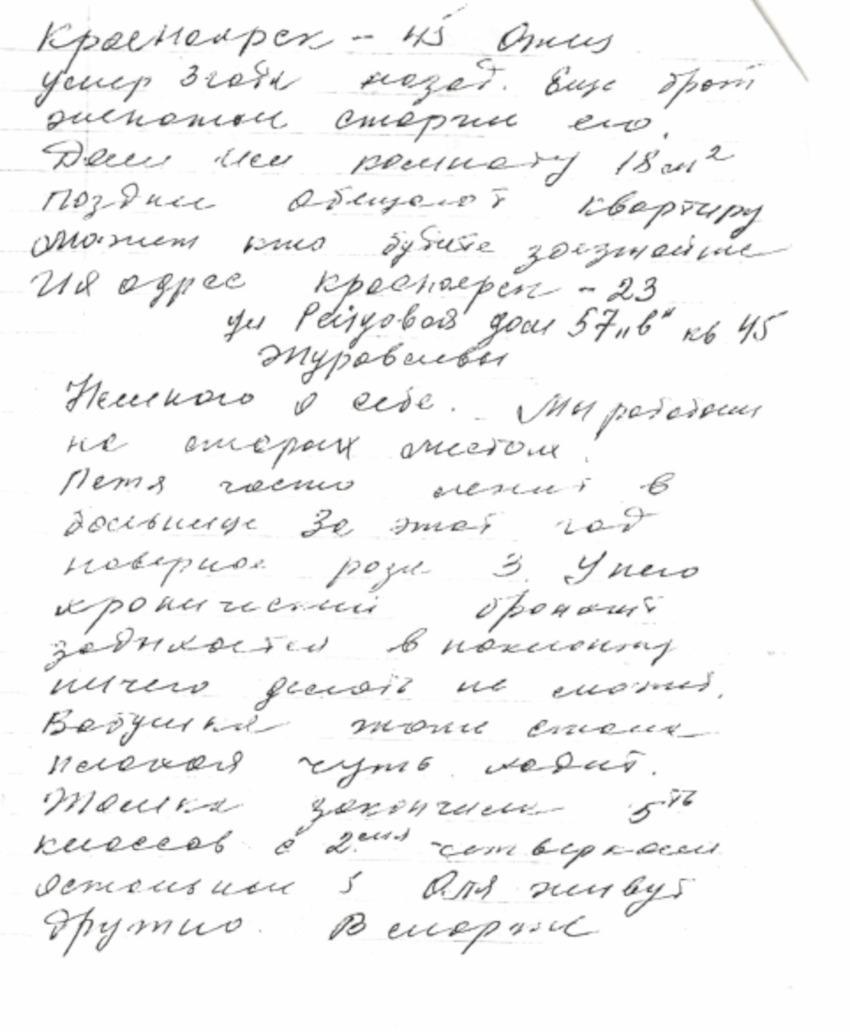 Красноярск - 45 Отец
умер 3 года назад. Еще брат
женатый старший его.
Дали им комнату 18 м²
позднее обещают квартиру
может кто будете заезжайте
Их адрес Красноярск - 23
ул Рейдовая дом 57 „в" кв 45
Журавлевы
Немного о себе. Мы работаем
на старых местах.
Петя часто лежит в
больнице За этот год
наверное раза 3. У него
хронический бронхит
задыхается в наклонку
ничего делать не может.
Бабушка тоже стала
плохая чуть ходит.
закончила 5ть
классов с 2мя четверками
остальные 5 Оля живут
дружно. В марте